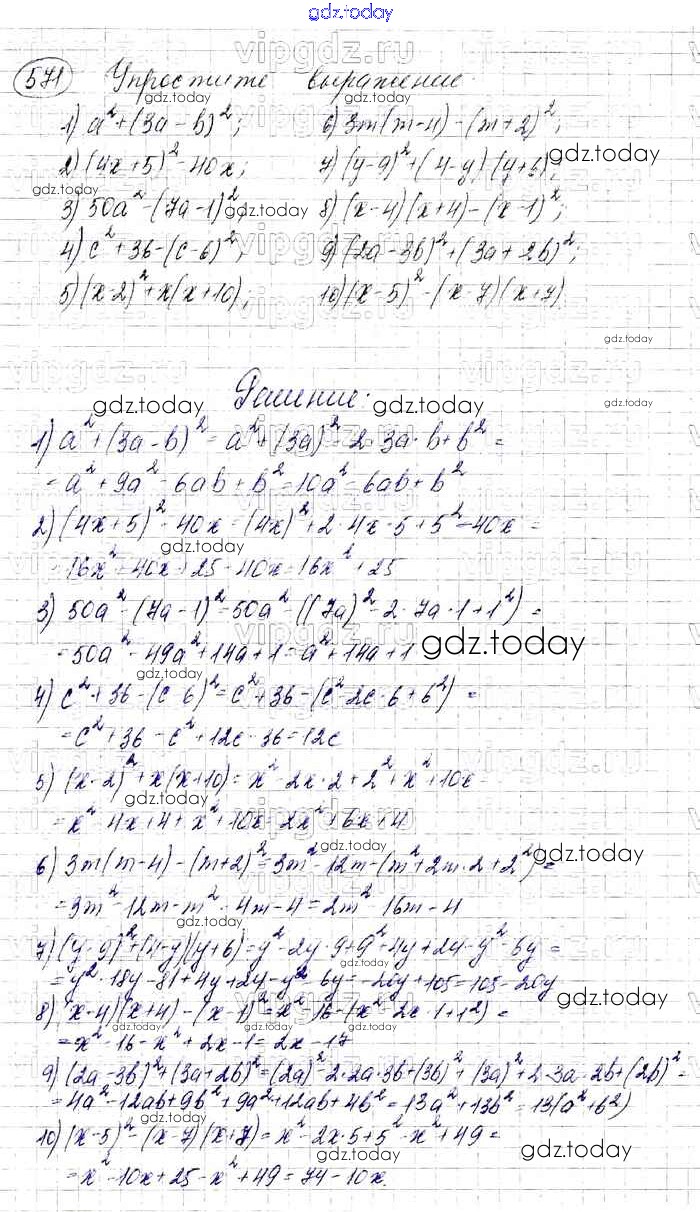 gdz.today
571 Упростите выражение.
1) a² + (3a - b)²; 6) 3m(m-4) - (m+2)²;
2) (4x+5)² - 40x; 7) (y-9)² + (4-y)(y+6);
3) 50a² - (7a-1)²; 8) (x-4)(x+4) - (x-1)²;
4) c² + 36 - (c-6)²; 9) (2a-3b)² + (3a+2b)²;
5) (x-2)² + x(x+10); 10) (x-5)² - (x-7)(x+7).
Решение.
1) a² + (3a-b)² = a² + (3a)² - 2·3a·b + b² =
= a² + 9a² - 6ab + b² = 10a² - 6ab + b²
2) (4x+5)² - 40x = (4x)² + 2·4x·5 + 5² - 40x =
= 16x² + 40x + 25 - 40x = 16x² + 25
3) 50a² - (7a-1)² = 50a² - ((7a)² - 2·7a·1 + 1²) =
= 50a² - 49a² + 14a + 1 = a² + 14a + 1
4) c² + 36 - (c-6)² = c² + 36 - (c² - 2c·6 + 6²) =
= c² + 36 - c² + 12c - 36 = 12c
5) (x-2)² + x(x+10) = x² - 2x·2 + 2² + x² + 10x =
= x² - 4x + 4 + x² + 10x = 2x² + 6x + 4
6) 3m(m-4) - (m+2)² = 3m² - 12m - (m² + 2m·2 + 2²) =
= 3m² - 12m - m² - 4m - 4 = 2m² - 16m - 4
7) (y-9)² + (4-y)(y+6) = y² - 2y·9 + 9² + 4y + 24 - y² - 6y =
= y² - 18y - 81 + 4y + 24 - y² - 6y = -20y + 105 = 105 - 20y
8) (x-4)(x+4) - (x-1)² = x² - 16 - (x² - 2x·1 + 1²) =
= x² - 16 - x² + 2x - 1 = 2x - 17
9) (2a-3b)² + (3a+2b)² = (2a)² - 2·2a·3b + (3b)² + (3a)² + 2·3a·2b + (2b)² =
= 4a² - 12ab + 9b² + 9a² + 12ab + 4b² = 13a² + 13b² = 13(a² + b²)
10) (x-5)² - (x-7)(x+7) = x² - 2x·5 + 5² - x² + 49 =
= x² - 10x + 25 - x² + 49 = 74 - 10x.